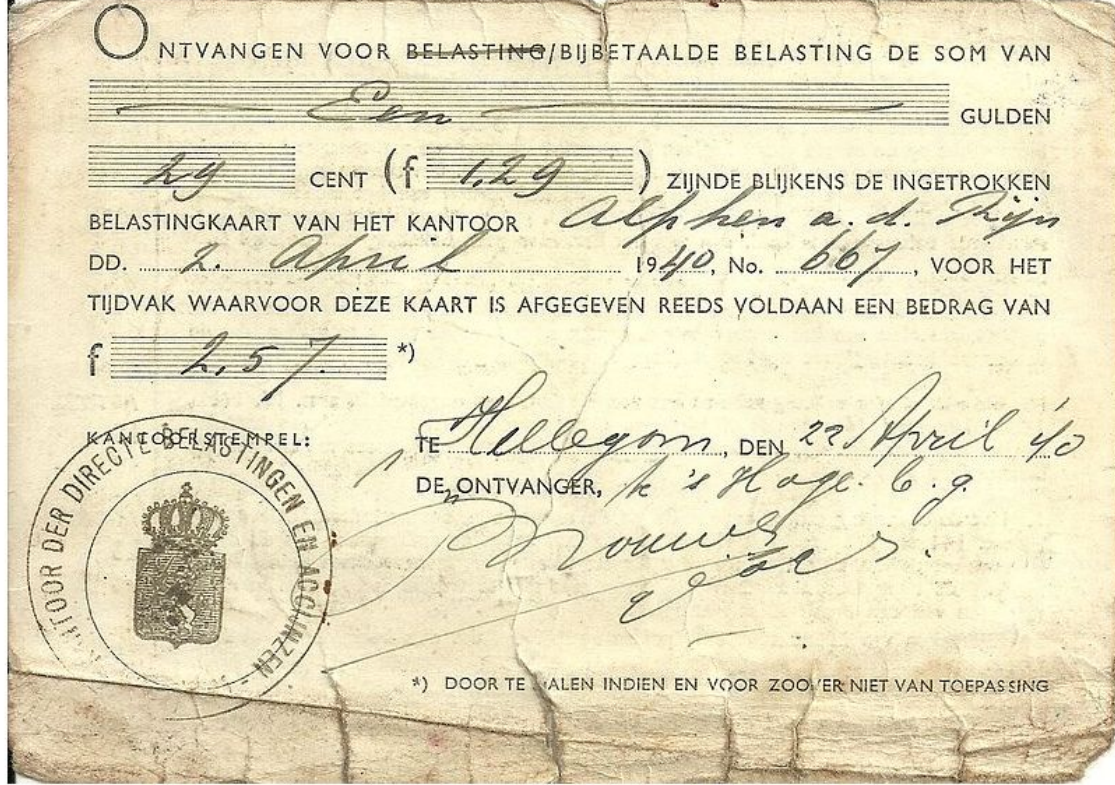 ONTVANGEN VOOR BELASTING/BIJBETAALDE BELASTING DE SOM VAN
Een GULDEN
29 CENT (f 1.29) ZIJNDE BLIJKENS DE INGETROKKEN
BELASTINGKAART VAN HET KANTOOR Alphen a.d. Rijn
DD. 2. April 1940, No. 667, VOOR HET
TIJDVAK WAARVOOR DEZE KAART IS AFGEGEVEN REEDS VOLDAAN EEN BEDRAG VAN
f 2,57. *)
KANTOORSTEMPEL:
TE Hillegom, DEN 22 April '40
DE ONTVANGER,
KANTOOR DER DIRECTE BELASTINGEN EN ACCIJNZEN
*) DOOR TE HALEN INDIEN EN VOOR ZOOVER NIET VAN TOEPASSING